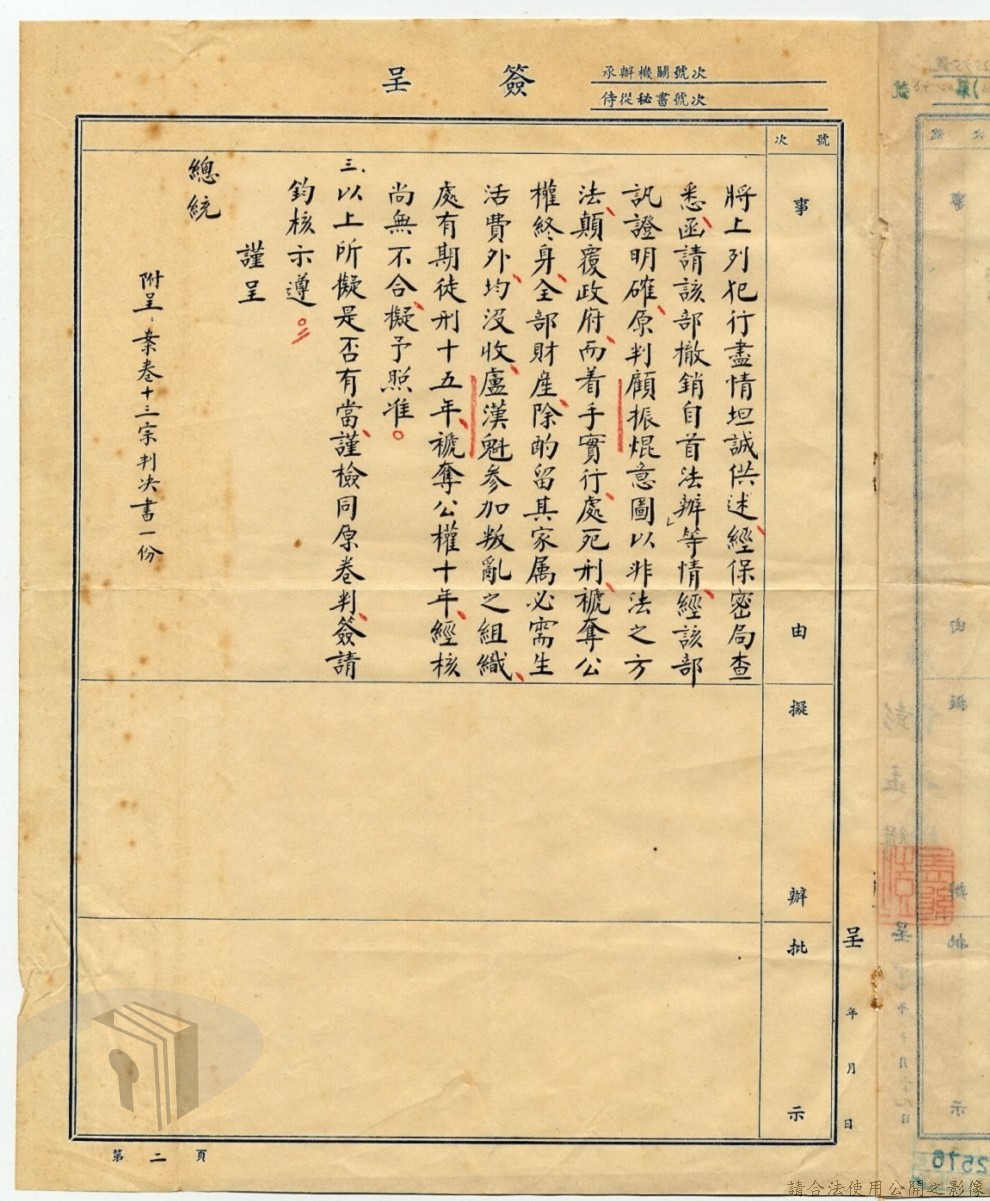 簽呈
承辦機關號次
侍從秘書號次
號次
事由
擬辦
批示
將上列犯行盡情坦誠供述、經保密局查
悉、函請該部撤銷自首法辦」等情、經該部
訊證明確、原判顧振焜意圖以非法之方
法、顛覆政府、而着手實行、處死刑、褫奪公
權終身、全部財產、除酌留其家属必需生
活費外、均沒收、盧漢魁參加叛亂之組織、
處有期徒刑十五年、褫奪公權十年、經核
尚無不合、擬予照准。
三、以上所擬是否有當、謹檢同原卷判、簽請
鈞核示遵。
謹呈
總統
附呈、案卷十三宗判決書一份
呈 年 月 日
第二頁
請合法使用公開之影像